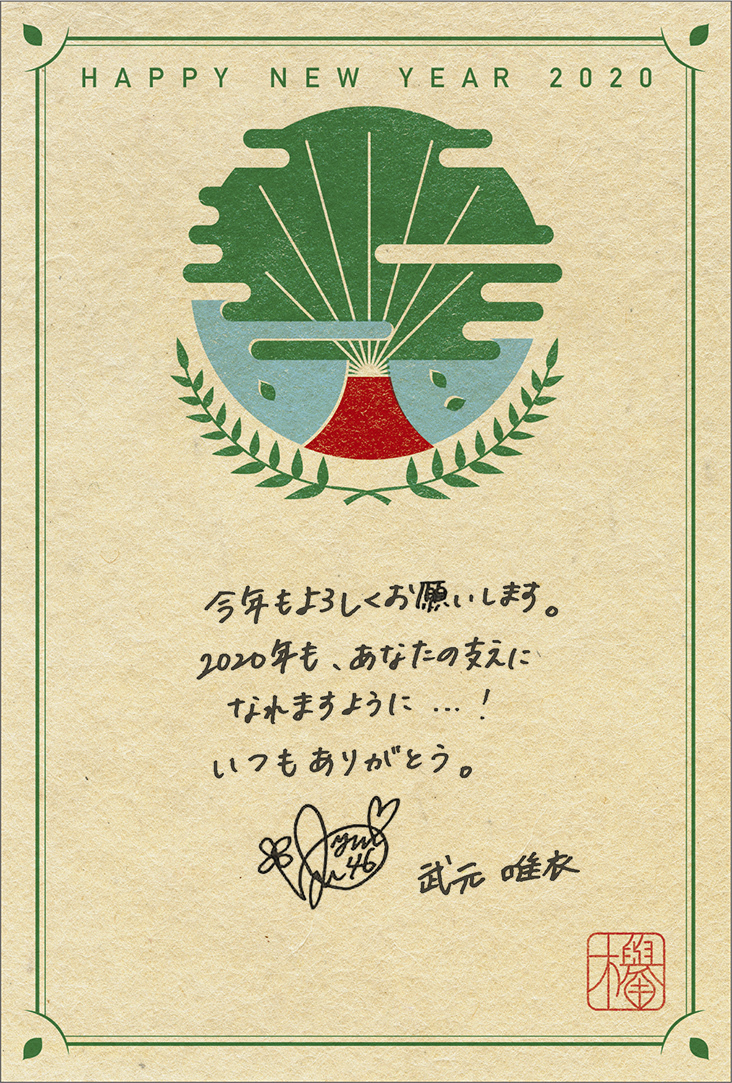 HAPPY NEW YEAR 2020
今年もよろしくお願いします。
2020年も、あなたの支えに
なれますように…！
いつもありがとう。
yui
46
武元 唯衣
欅